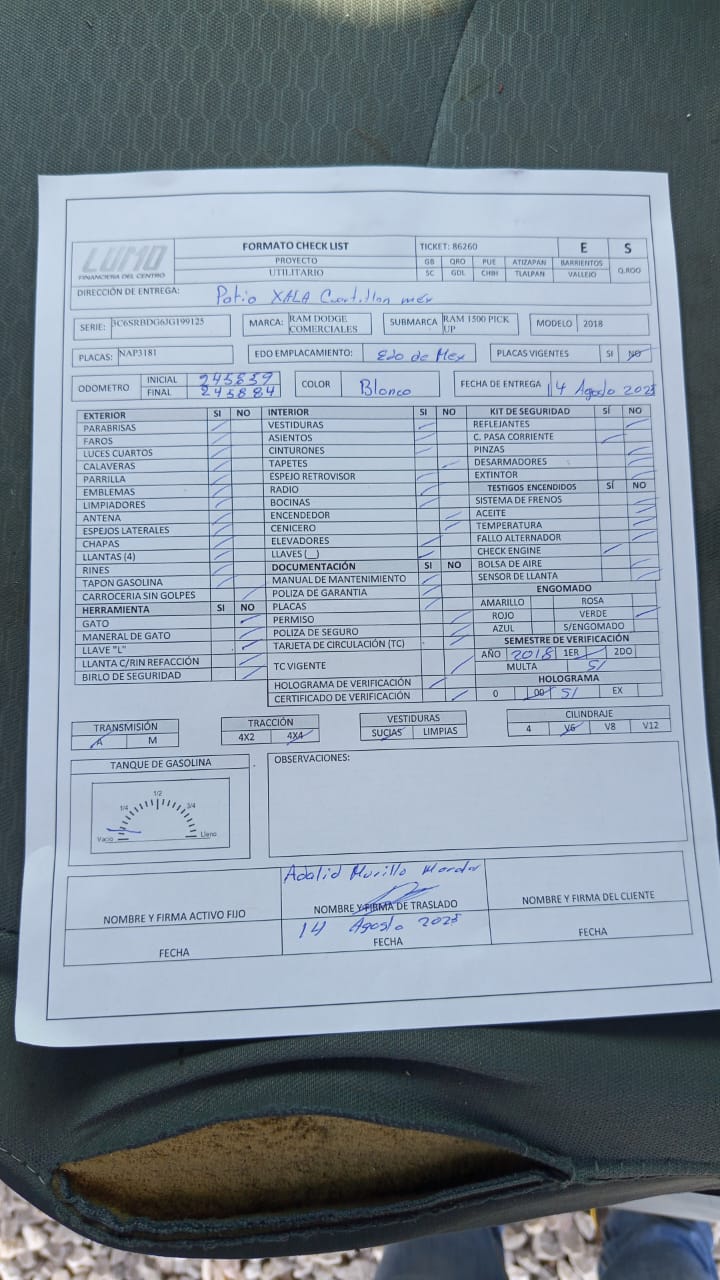 LUMO
FINANCIERA DEL CENTRO
FORMATO CHECK LIST
PROYECTO
UTILITARIO
TICKET: 86260 E S
GB QRO PUE ATIZAPAN BARRIENTOS
SC GDL CHIH TLALPAN VALLEJO Q.ROO
DIRECCIÓN DE ENTREGA: Patio XALA Cuautitlan méx
SERIE: 3C6SRBDG6JG199125 MARCA: RAM DODGE COMERCIALES SUBMARCA RAM 1500 PICK UP MODELO 2018
PLACAS: NAP3181 EDO EMPLACAMIENTO: Edo de Mex PLACAS VIGENTES SI NO
ODOMETRO INICIAL 245839
FINAL 245884
COLOR Blanco FECHA DE ENTREGA 14 Agosto 2025
EXTERIOR SI NO
PARABRISAS
FAROS
LUCES CUARTOS
CALAVERAS
PARRILLA
EMBLEMAS
LIMPIADORES
ANTENA
ESPEJOS LATERALES
CHAPAS
LLANTAS (4)
RINES
TAPON GASOLINA
CARROCERIA SIN GOLPES
HERRAMIENTA SI NO
GATO
MANERAL DE GATO
LLAVE "L"
LLANTA C/RIN REFACCIÓN
BIRLO DE SEGURIDAD
INTERIOR SI NO
VESTIDURAS
ASIENTOS
CINTURONES
TAPETES
ESPEJO RETROVISOR
RADIO
BOCINAS
ENCENDEDOR
CENICERO
ELEVADORES
LLAVES (__)
DOCUMENTACIÓN SI NO
MANUAL DE MANTENIMIENTO
POLIZA DE GARANTIA
PLACAS
PERMISO
POLIZA DE SEGURO
TARJETA DE CIRCULACIÓN (TC)
TC VIGENTE
HOLOGRAMA DE VERIFICACIÓN
CERTIFICADO DE VERIFICACIÓN
KIT DE SEGURIDAD SÍ NO
REFLEJANTES
C. PASA CORRIENTE
PINZAS
DESARMADORES
EXTINTOR
TESTIGOS ENCENDIDOS SÍ NO
SISTEMA DE FRENOS
ACEITE
TEMPERATURA
FALLO ALTERNADOR
CHECK ENGINE
BOLSA DE AIRE
SENSOR DE LLANTA
ENGOMADO
AMARILLO ROSA
ROJO VERDE
AZUL S/ENGOMADO
SEMESTRE DE VERIFICACIÓN
AÑO 2018 1ER 2DO
MULTA SI
HOLOGRAMA
0 00 SI EX
TRANSMISIÓN
A M
TRACCIÓN
4X2 4X4
VESTIDURAS
SUCIAS LIMPIAS
CILINDRAJE
4 V6 V8 V12
TANQUE DE GASOLINA
1/2
1/4 3/4
Vacio Lleno
OBSERVACIONES:
NOMBRE Y FIRMA ACTIVO FIJO
FECHA
Adalid Murillo
NOMBRE Y FIRMA DE TRASLADO
14 Agosto 2025
FECHA
NOMBRE Y FIRMA DEL CLIENTE
FECHA